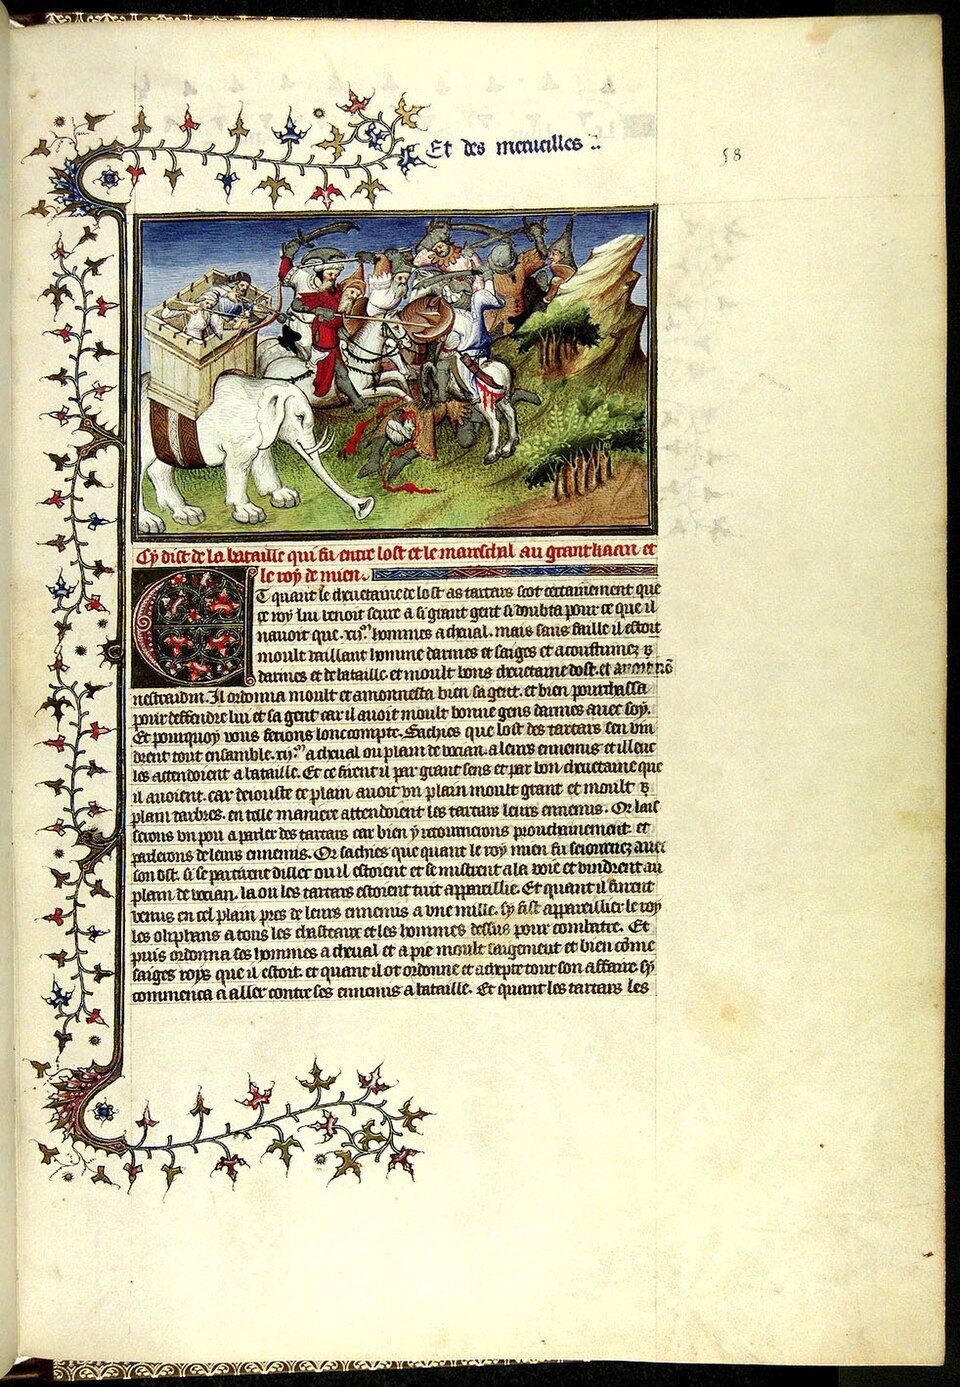 Et des merueilles
58
Cy dist de la bataille qui fu entre lost et le mareschal au grant kaan et
le roy de mien.
Et quant le cheuetaine de lost as tartars scot certainement que
ce roy lui uenoit seure a si grant gent si doubta pour ce que il
nauoit que .xij.m hommes a cheual. mais sans faille il estoit
moult uaillant homme darmes et saiges et acoustumez
darmes et de bataille. et moult bons cheuetaine dost. et auoit nō
nestraidin. Il ordonna moult et amonnesta bien sa gent. et bien pourchassa
pour deffendre lui et sa gent car il auoit moult bonne gens darmes auec soy.
Et pourquoy uous feroins lonc compte. Sachies que lost des tartars sen uin
drent tout ensamble .xij.m a cheual ou plain de uocian. a leurs ennemis et illeuc
les attendoient a bataille. Et ce firent il par grant sens et par bon cheuetaine que
il auoient. car deiouste ce plain auoit un plain moult grant et moult
plain darbres. en telle maniere attendoient les tartars leurs ennemis. Or lais
serons un pou a parler des tartars car bien y retournerons prouchainement et
parlerons de leurs ennemis. Or sachies que quant le roy mien fu seiournez auec
son ost. si se partirent dillec ou il estoient et se mistrent a la uoie et uindrent au
plain de uocian. la ou les tartars estoient tuit appareillie. Et quant il furent
uenus en cel plain pres de leurs ennemis a une mille. sy fist appareillier le roy
les oliphans a tous les chasteaux et les hommes dessus pour combatre. Et
puis ordonna ses hommes a cheual et a pie moult saigement et bien cōme
saiges roys que il estoit. et quant il ot ordonne et tout son affaire sy
commenca a aller contre ses ennemis a bataille. Et quant les tartars les